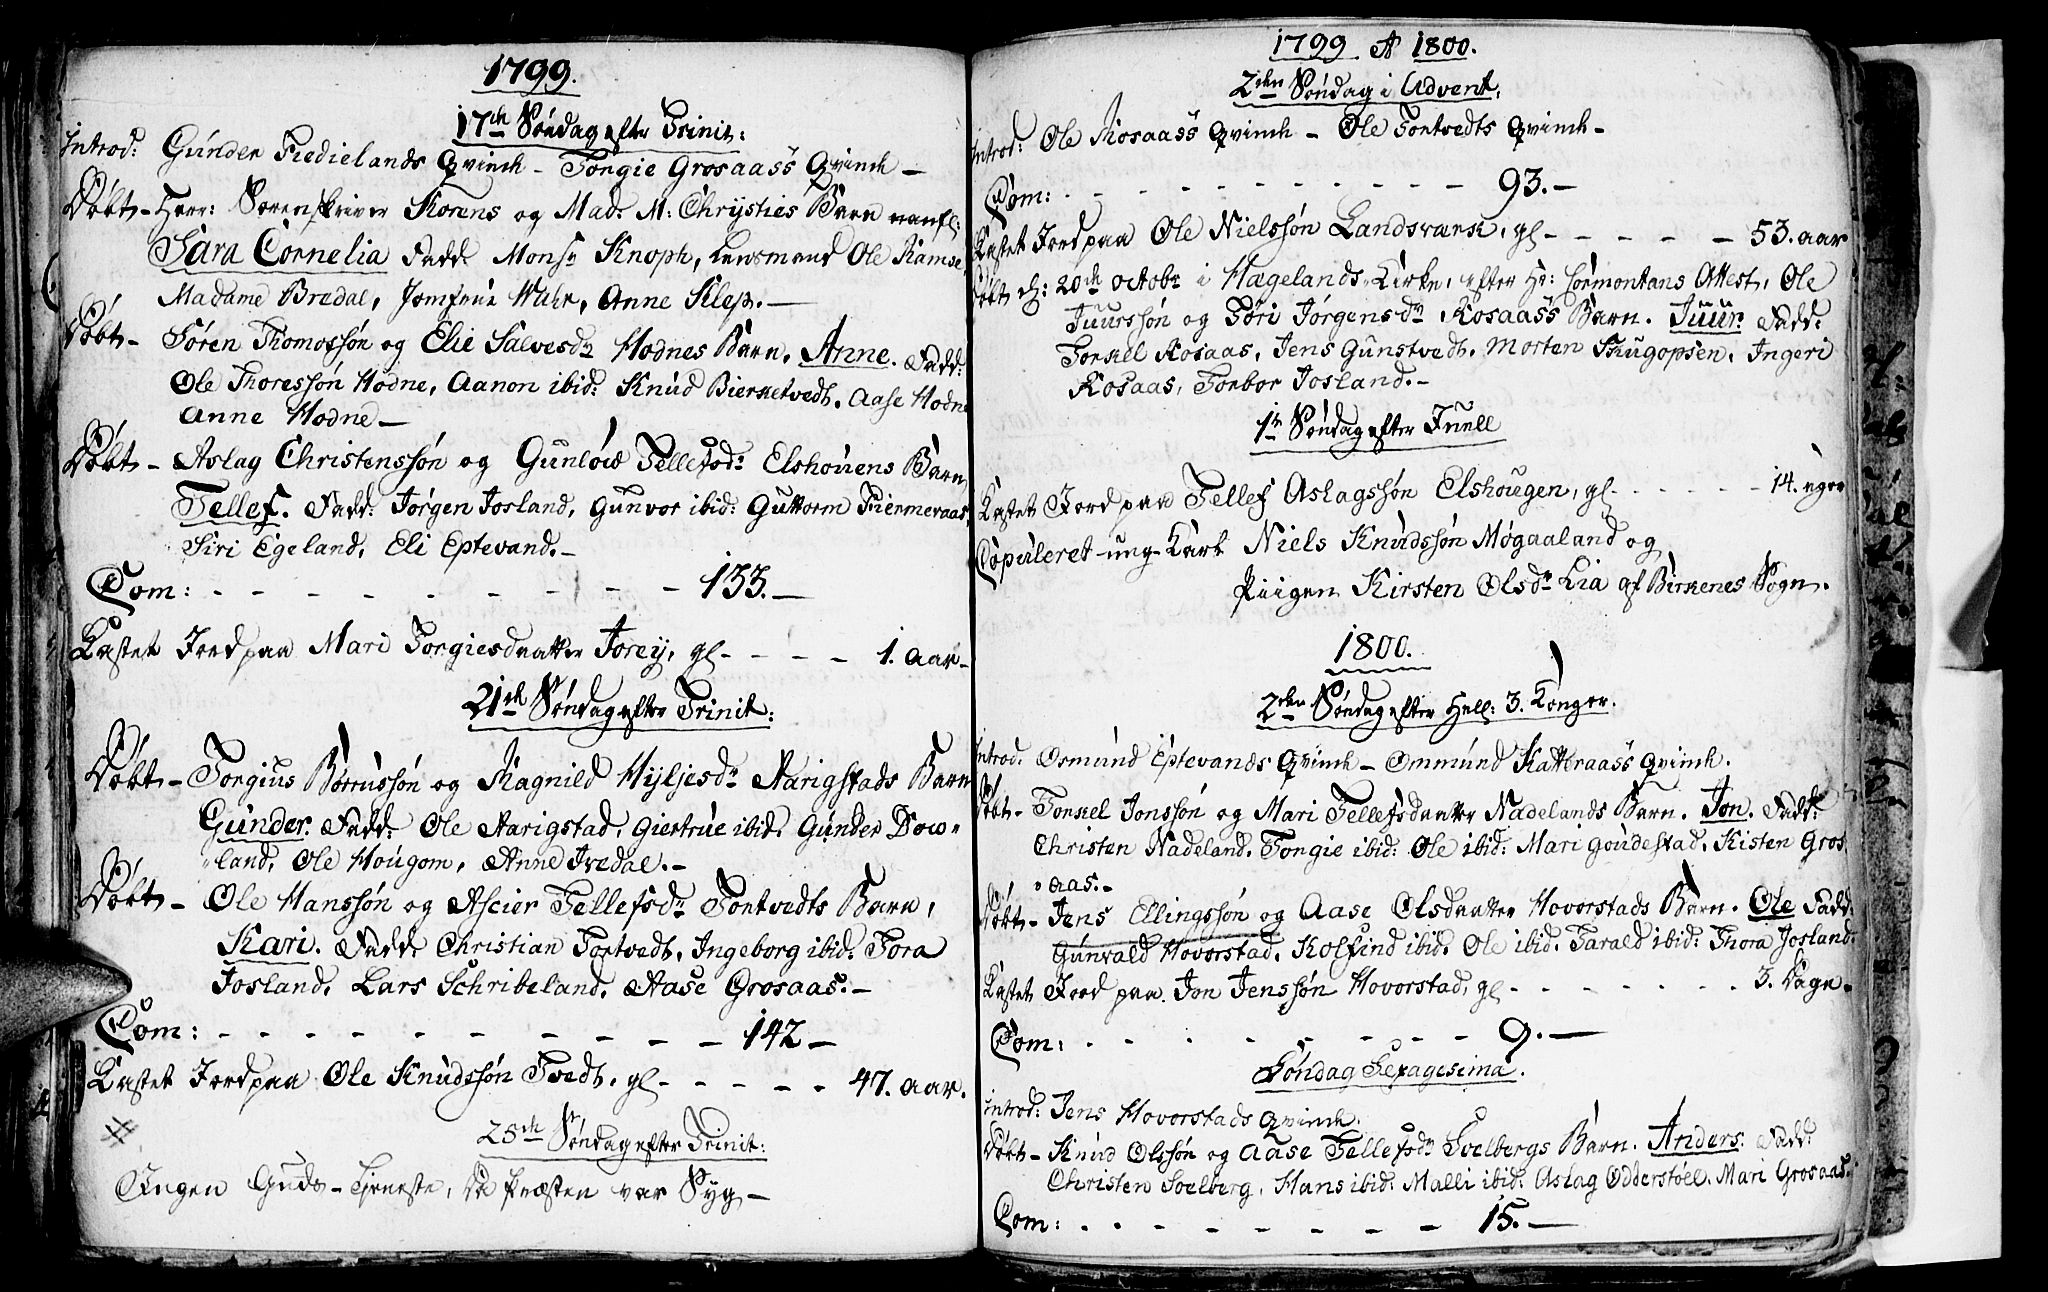 1799.
17de Søndag efter Trinit:
Introd: Gunder Fredielands Qvinde – Torgie Grosaass Qvinde –
Døbt – Herr: Sorenskriver Korens og Mad. M: Chrysties Barn navnl:
Sara Cornelia Fadd. Monsr Knoph, Lensmand Ole Ramse
Madame Bredal, Jomfrue Wuhr, Anne Klep. –
Døbt – Søren Thomossøn og Elie Salvesdr Hodnes Barn. Anne. Fadd:
Ole Thoressøn Hodne, Aanon ibid: Knud Bierketvedt. Aase Hodne
Anne Hodne –
Døbt – Aslag Christenssøn og Gunloue Tellefsd: Elshouens Barn,
Tellef. Fadd: Jørgen Josland, Gunvor ibid: Guttorm Fiermeraas,
Siri Egeland, Eli Eptevand. –
Com: - - - - - - - - 133. –
Kastet Jord paa Mari Torgiesdaatter Torey, gl - - - - 1. Aar –
21de Søndag efter Trinit:
Døbt – Torgius Børrussøn og Ragnild Hyljesdr Aarigstads Barn
Gunder. Fadd: Ole Aarigstad, Giertrue ibid. Gunder Dow-
land, Ole Hougom, Anne Ivedal. –
Døbt – Ole Hanssøn og Ascier Tellefsdr Tortvedts Barn,
Kari. Fadd: Christian Tortvedt, Ingeborg ibid: Tora
Josland, Lars Schribeland, Aase Grosaas. –
Com: - - - - - - - - - 142 –
Kastet Jord paa Ole Knudssøn Tvedt, gl - - - - - 47. Aar.
25de Søndag efter Trinit:
Ingen Guds-Tjeneste, da Præsten var Syg –
1799 A 1800.
2den Søndag i Advent.
Introd: Ole Rosaass Qvinde – Ole Tortvedts Qvinde –
Com: - - - - - - - - - - - 93. –
Kastet Jord paa Ole Nielssøn Landsværk, gl - - - - - 53. aar
Døbt d: 20de octobr i Hægelands-Kirke, efter Hr: Cormontans Attest, Ole
Juurssøn og Tøri Jørgensdr Rosaass Barn. Juur. Fadd:
Torkel Rosaas, Jens Gunstvedt, Morten Skugopsen, Ingeri
Rosaas, Torbor Josland. –
1te Søndag efter Juell
Kastet Jord paa Tellef Aslagssøn Elshougen, gl - - - - - 14. uger
Copuleret ung-Karl Niels Knudssøn Møgaaland og
Piigen Kirsten Olsdr Lia af Birkenes Sogn.
1800.
2den Søndag efter Hell: 3. Konger.
Introd. Osmund Eptevands Qvinde – Ommund Katteraass Qvinde.
Døbt – Torkel Jonssøn og Mari Tellefsdaatter Nadelands Barn. Jon. Fadd:
Christen Nadeland, Torgie ibid: Ole ibid: Mari Goudestad, Kisten Gros
aas. –
Døbt – Jens Ellingssøn og Aase Olsdaatter Hovorstads Barn. Ole Fadd:
Gunvald Hovorstad, Kolfind ibid. Ole ibid. Tarald ibid: Thora Josland.
Kastet Jord paa Jon Jenssøn Hovorstad, gl - - - - - - - 3. Dage –
Com: - - - - - - - - 9. –
Søndag Sexagesima.
introd: Jens Hovorstads Qvinde.
Døbt – Knud Olssøn og Aase Tellefsdr Soelbergs Barn. Anders. Fadd:
Christen Soelberg, Hans ibid: Malli ibid: Aslag Odderstøel, Mari Grosaas.
Com: - - - - - - - - 15. –